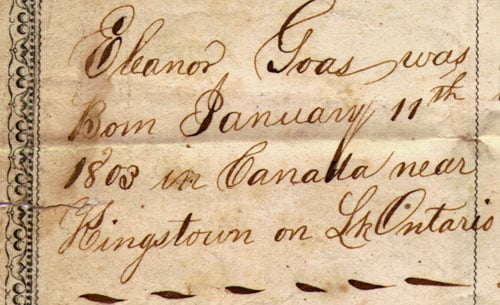 Eleanor Goas was
Born January 11th
1803 in Canada near
Kingstown on Lk Ontario